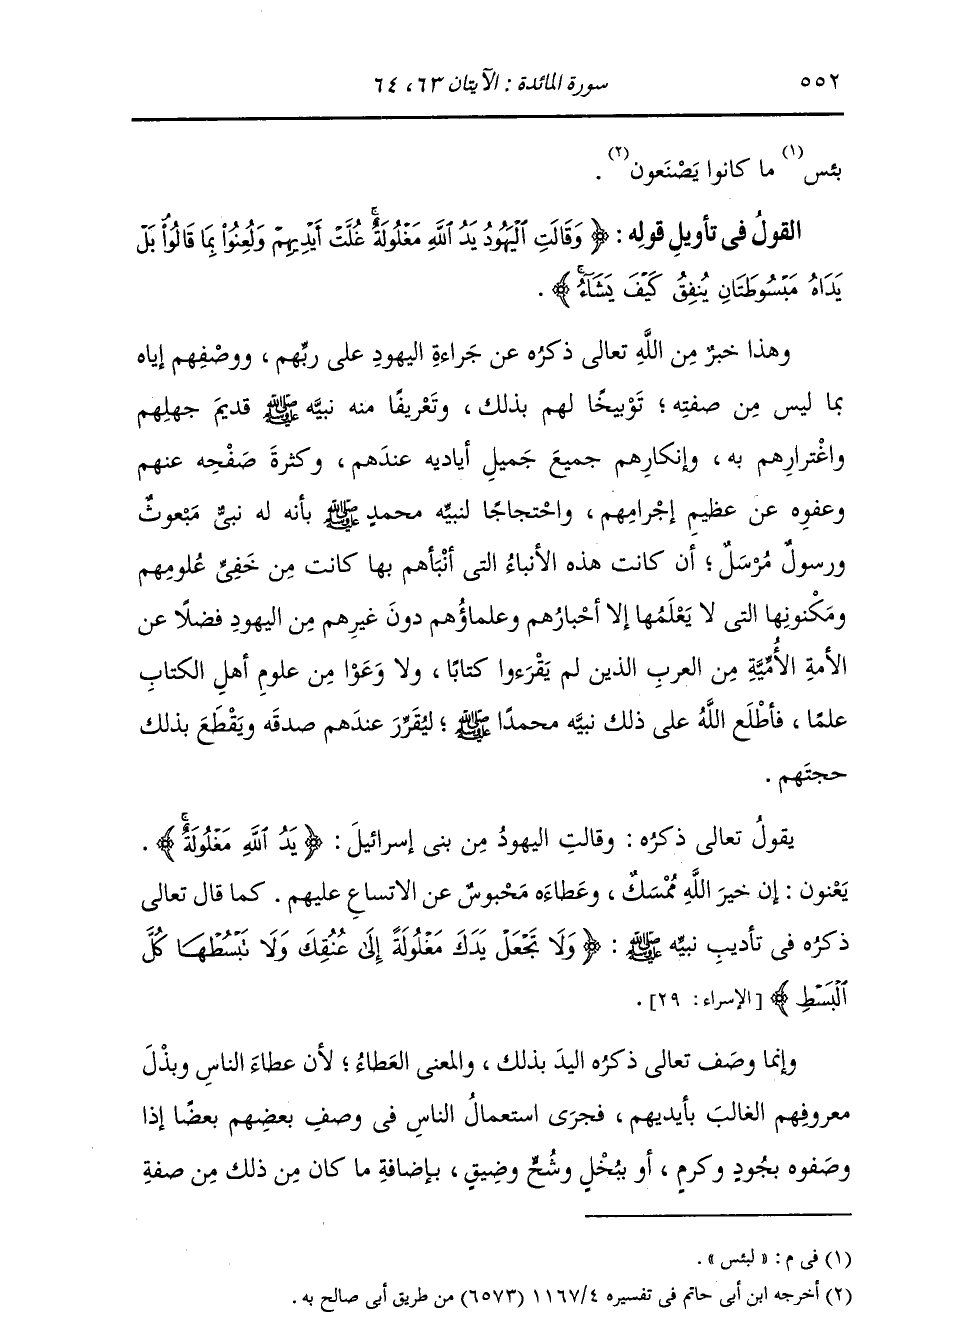 ٥٥٢ سورة المائدة : الآيتان ٦٣، ٦٤
بئس(١) ما كانوا يَصْنَعون(٢) .
القولُ فى تأويلِ قولِه : ﴿ وَقَالَتِ ٱلْيَهُودُ يَدُ ٱللَّهِ مَغْلُولَةٌۚ غُلَّتْ أَيْدِيهِمْ وَلُعِنُوا۟ بِمَا قَالُوا۟ۘ بَلْ
يَدَاهُ مَبْسُوطَتَانِ يُنفِقُ كَيْفَ يَشَآءُۚ ﴾ .
وهذا خبرٌ مِن اللَّهِ تعالى ذكرُه عن جَراءةِ اليهودِ على ربِّهم ، ووصْفِهم إياه
بما ليس مِن صفتِه ؛ تَوْبيخًا لهم بذلك ، وتَعْريفًا منه نبيَّه ﷺ قديمَ جهلِهم
واغْترارِهم به ، وإنكارِهم جميعَ جَميلِ أياديه عندَهم ، وكثرةَ صَفْحِه عنهم
وعفوِه عن عظيمِ إجْرامِهم ، واحْتجاجًا لنبيِّه محمدٍ ﷺ بأنه له نبىٌّ مَبْعوثٌ
ورسولٌ مُرْسَلٌ ؛ أن كانت هذه الأنباءُ التى أنْبَأهم بها كانت مِن خَفِىِّ عُلومِهم
ومَكْنونِها التى لا يَعْلَمُها إلا أحْبارُهم وعلماؤُهم دونَ غيرِهم مِن اليهودِ فضلًا عن
الأمةِ الأُمِّيَّةِ مِن العربِ الذين لم يَقْرَءوا كتابًا ، ولا وَعَوْا مِن علومِ أهلِ الكتابِ
علمًا ، فأطْلَع اللَّهُ على ذلك نبيَّه محمدًا ﷺ ؛ ليُقَرِّرَ عندَهم صدقَه ويَقْطَعَ بذلك
حجتَهم .
يقولُ تعالى ذكرُه : وقالتِ اليهودُ مِن بنى إسرائيلَ : ﴿ يَدُ ٱللَّهِ مَغْلُولَةٌۚ ﴾ .
يَعْنون : إن خيرَ اللَّهِ مُمْسَكٌ ، وعَطاءَه مَحْبوسٌ عن الاتساعِ عليهم . كما قال تعالى
ذكرُه فى تأديبِ نبيِّه ﷺ : ﴿ وَلَا تَجْعَلْ يَدَكَ مَغْلُولَةً إِلَىٰ عُنُقِكَ وَلَا تَبْسُطْهَا كُلَّ
ٱلْبَسْطِ ﴾ [ الإسراء : ٢٩] .
وإنما وصَف تعالى ذكرُه اليدَ بذلك ، والمعنى العَطاءُ ؛ لأن عطاءَ الناسِ وبذْلَ
معروفِهم الغالبَ بأيديهم ، فجرَى استعمالُ الناسِ فى وصفِ بعضِهم بعضًا إذا
وصَفوه بجُودٍ وكرمٍ ، أو ببُخْلٍ وشُحٍّ وضِيقٍ ، بإضافةِ ما كان مِن ذلك مِن صفةِ
(١) فى م : « لبئس » .
(٢) أخرجه ابن أبى حاتم فى تفسيره ١١٦٧/٤ (٦٥٧٣) من طريق أبى صالح به .